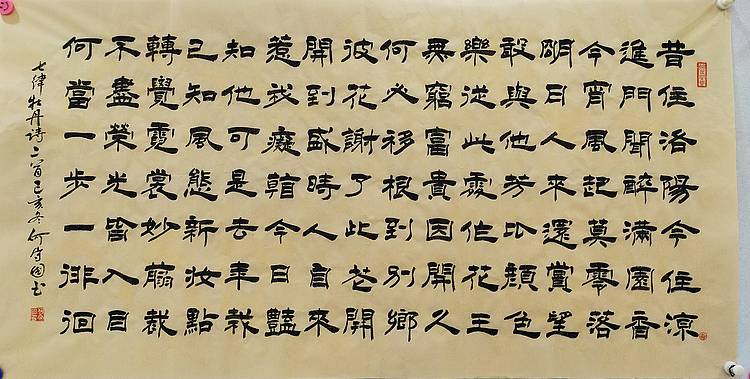 昔住洛陽今住涼
進門聞醉滿園香
今宵風起莫零落
明日人來還賞望
敢與他芳比顏色
樂從此處作花王
無窮富貴因開久
何必移根到別鄉
彼花謝了此花開
開到盛時人自來
惹我癡今日豔
知他可是去年栽
已知風態新妝點
轉覺霓裳妙翦裁
不盡榮光皆入目
何當一步一徘徊
七律牡丹詩二首己亥冬何守國書